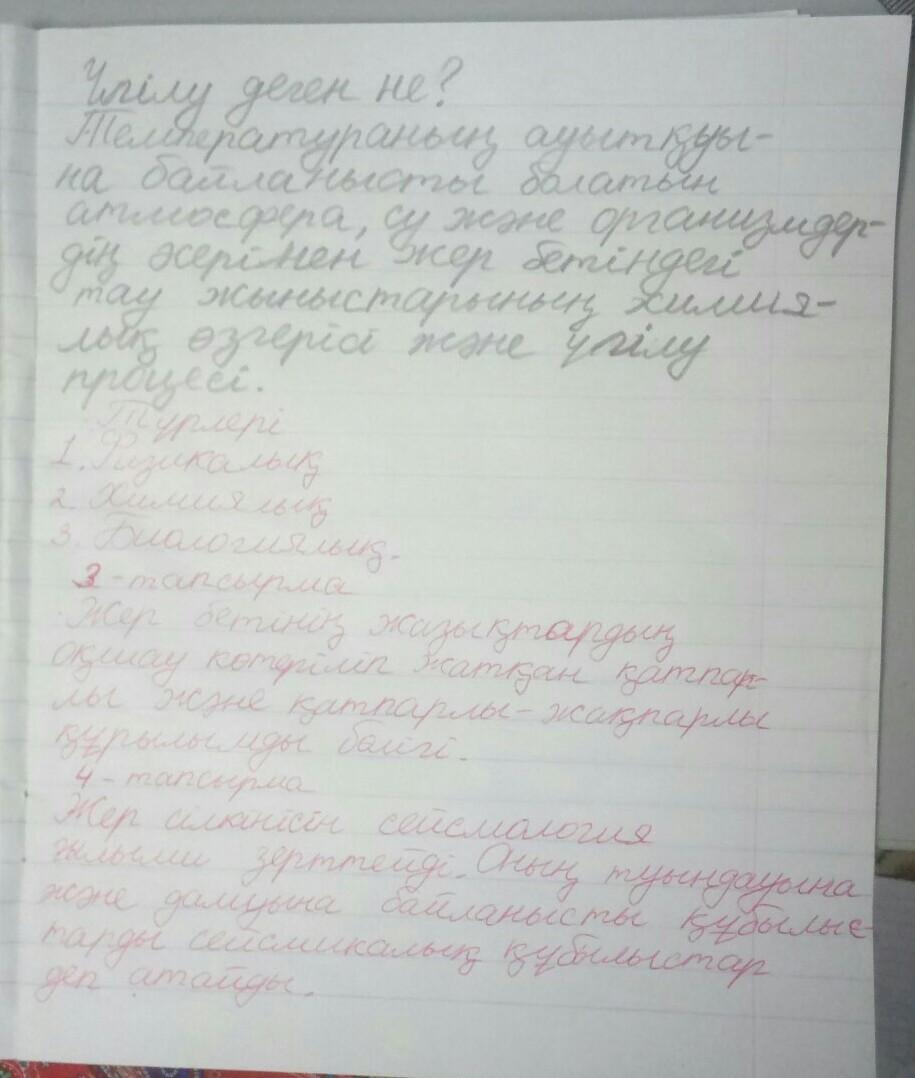 Үгілу деген не?
Температураның ауытқуы-
на байланысты болатын
атмосфера, су және организмдер-
дің әсерінен жер бетіндегі
тау жыныстарының химия-
лық өзгерісі және үгілу
процесі.
Түрлері
1. Физикалық
2. Химиялық
3. Биологиялық.
3-тапсырма
Жер бетінің жазықтардың
оқшау көтеріліп жатқан қатпар-
лы және қатпарлы-жақпарлы
құрылымды бөлігі.
4-тапсырма
Жер сілкінісін сейсмология
ғылыми зерттейді. Оның туындауына
және дамуына байланысты құбылыс-
тарды сейсмикалық құбылыстар
деп атайды.